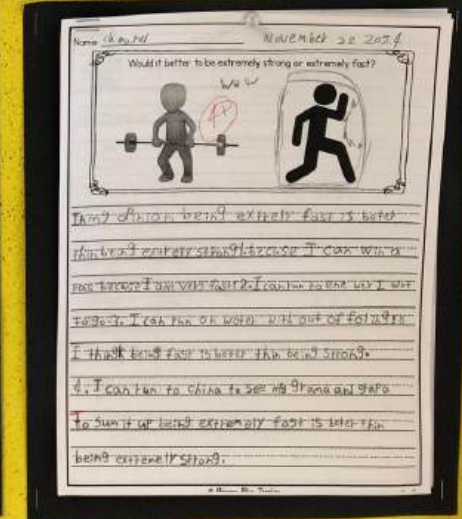 Name November 22 2024
Would it better to be extremely strong or extremely fast?
Wow
A+
In my opinion being extrely fast is beter
thin being extrely strong 1. because I can win a
race because I am very fast 2. I can run to the wer I wot
to go 3. I can run on woter with out of foling in
I think being fast is beter thin being strong.
4. I can run to china to see my grama and grapa
To sum it up being extremely fast is beter thin
being extremely strong.